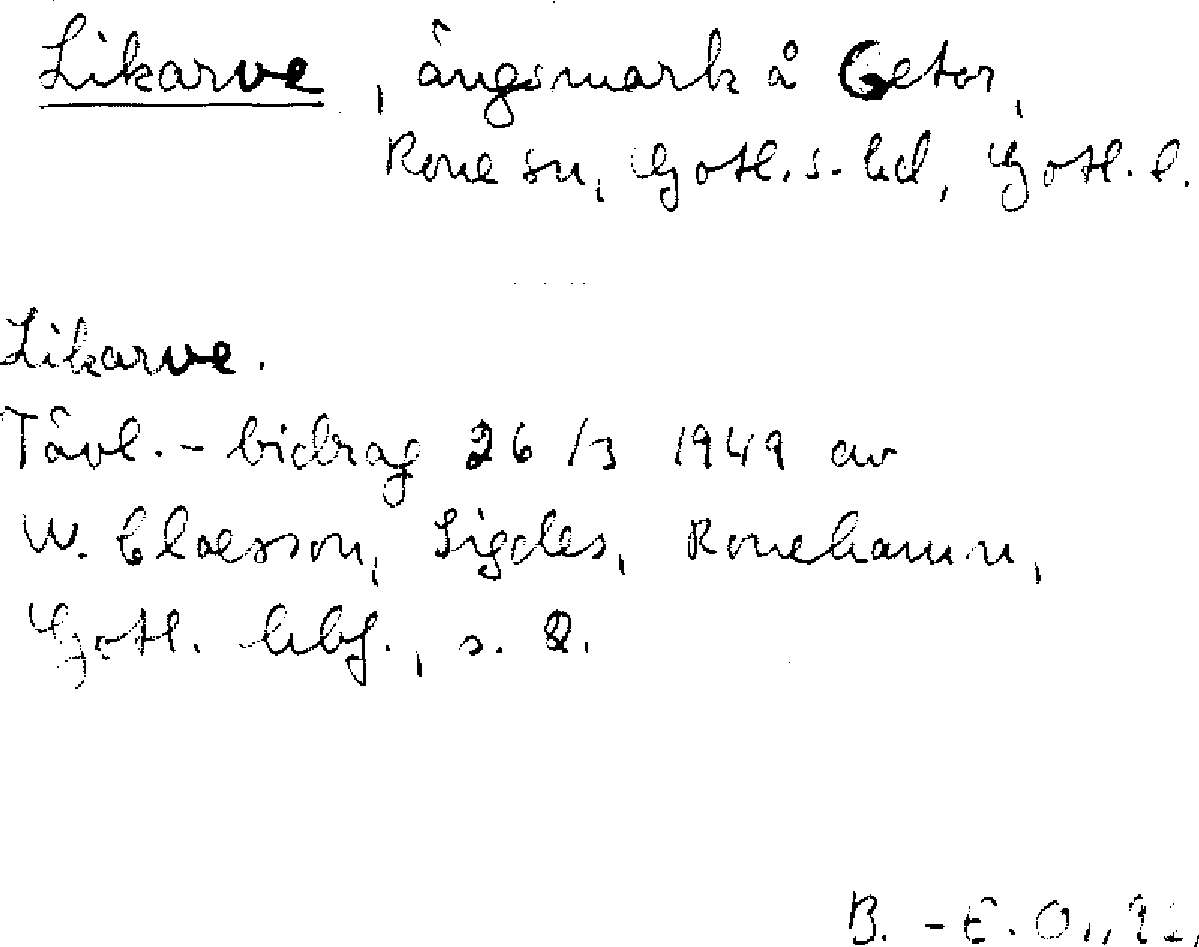 Likarve, ängsmark å Getor,
Rone sn, Gotl. s. hd, Gotl. l.
Likarve.
Tävl.-bidrag 26/3 1949 av
W. Claesson, Sigdes, Ronehamn,
Gotl. hbf., s. 2.
B.-E. O.,